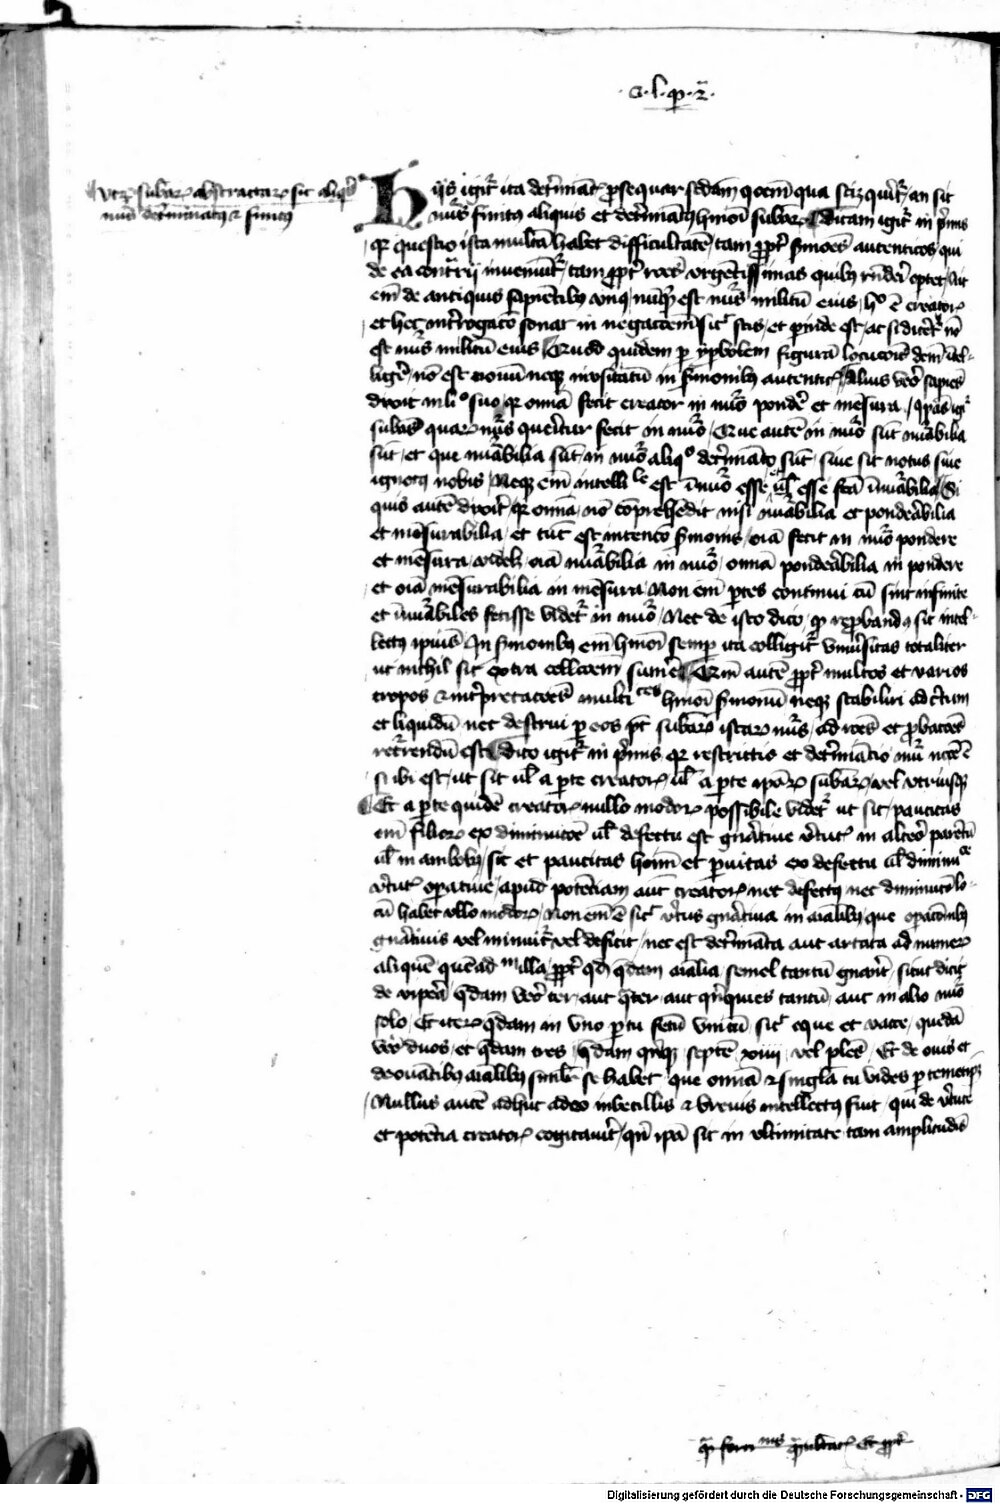 ·c·l·p·2·
utrum subarum abstractarum sit aliquis
numerus determinatus et finitus
Hiis igitur ita determinatis prosequar secundam questionem qua scilicet queritur an sit
numerus finitus aliquis et determinatus huiusmodi subarum Dicam igitur in primis
quod questio ista multam habet difficultatem tam propter sermones autenticos qui
de ea contrarii inveniuntur tam propter rationes urgentissimas quibus respondere oportet Ait
enim de antiquis sapientibus numquid est numerus militum eius hoc est creatoris
et hec interrogatio sonat in negationem sicut scis et perinde est ac si diceretur non
est numerus militum eius Quod quidem per yperbolem figuram locutionis dictum intel-
ligere non est novum neque inusitatum in sermonibus autenticis Alius vero sapiens
dixit in libro suo quod omnia fecit creator in numero pondere et mensura ipsas igitur
subas quarum numerus queritur fecit in numero Que autem in numero sunt numerabilia
sunt et que numerabilia sunt in numero aliquo determinato sunt sive sit notus sive
ignotus nobis Neque enim intelligibile est in numero esse vel esse facta innumerabilia Si
quis autem dixerit quod omnia non comprehendit nisi numerabilia et ponderabilia
et mensurabilia et tunc est intentio sermonis omnia fecit in numero pondere
et mensura videlicet omnia numerabilia in numero omnia ponderabilia in pondere
et omnia mensurabilia in mensura Non enim partes continui cum sint infinite
et innumerabiles fecisse videtur in numero Nec de isto dico quod reprobandus sit intel-
lectus ipsius In sermonibus enim huiusmodi semper ita colligitur universitas totaliter
ut nichil sit extra collectionem sumere Quoniam autem propter multos et varios
tropos et interpretationes multiplices huiusmodi sermonum neque stabiliri ad certum
et liquidum nec destrui per eos potest subarum istarum numerus ad rationes et probationes
recurrendum est Dico igitur in primis quod restrictio et determinatio numeri necesse est
si ibi est ut sit vel a parte creatoris vel a parte ipsarum subarum vel utriusque
Et a parte quidem creatoris nullo modorum possibile videtur ut sit paucitas
enim filiorum ex diminutione vel defectu est generative virtutis in altero parentum
vel in ambobus sic et paucitas hominum et parvitas ex defectu vel diminutione
virtutis operative apud potentiam autem creatoris nec defectus nec diminutio lo-
cum habet ullo modorum Non enim est sicut virtus generativa in animalibus que operationibus
generativis vel minuitur vel deficit nec est determinata aut artata ad numerum
aliquem quemadmodum illa propter quod quedam animalia semel tantum generant sicut dicitur
de vipera quedam vero ter aut quater aut quinquies tantum aut in alio numero
solo Et iterum quedam in uno partu fetum unicum sicut eque et vacce quedam
vero duos et quedam tres quedam quinque septem xiiii vel plures Et de ovis et
de ovantibus animalibus similiter se habet que omnia et singula tu vides per temetipsum
Nullus autem adhuc adeo imbecillis et brevis intellectus fuit qui de virtute
et potentia creatoris cogitaverit quin ipsa sit in ultimitate tam amplitudinis